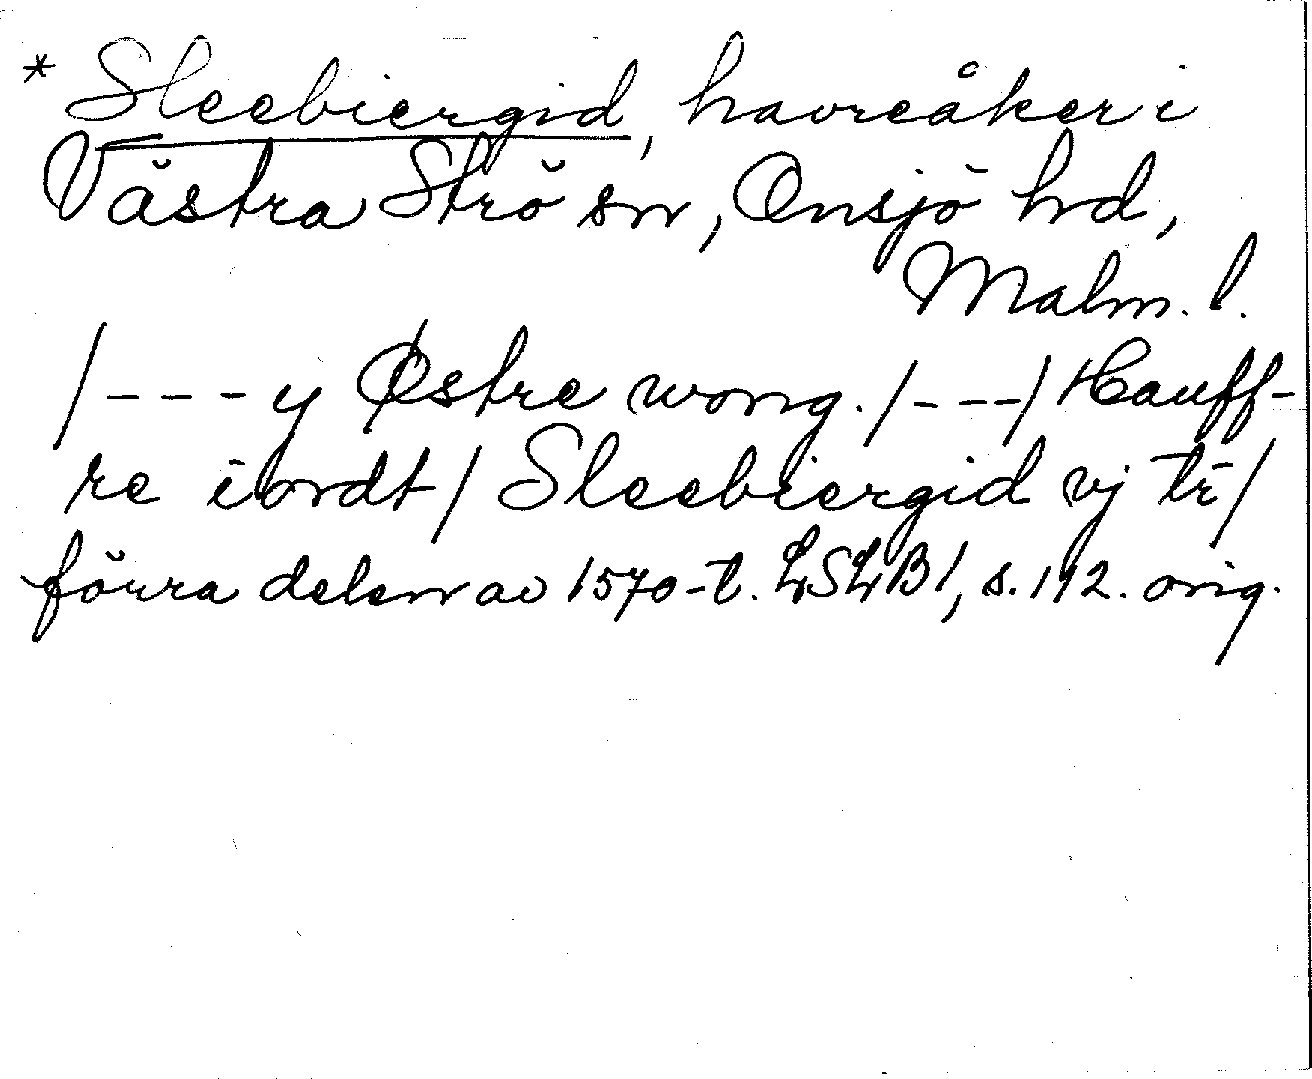 * Sleebiergid, havreåker i
Västra Strö sn, Onsjö hd,
Malm. l.
/---y Østre wong./---/Hauff-
re iordt/Sleebiergid vj tr/
förra delen av 1570-t. LSLB1, s. 192. orig.